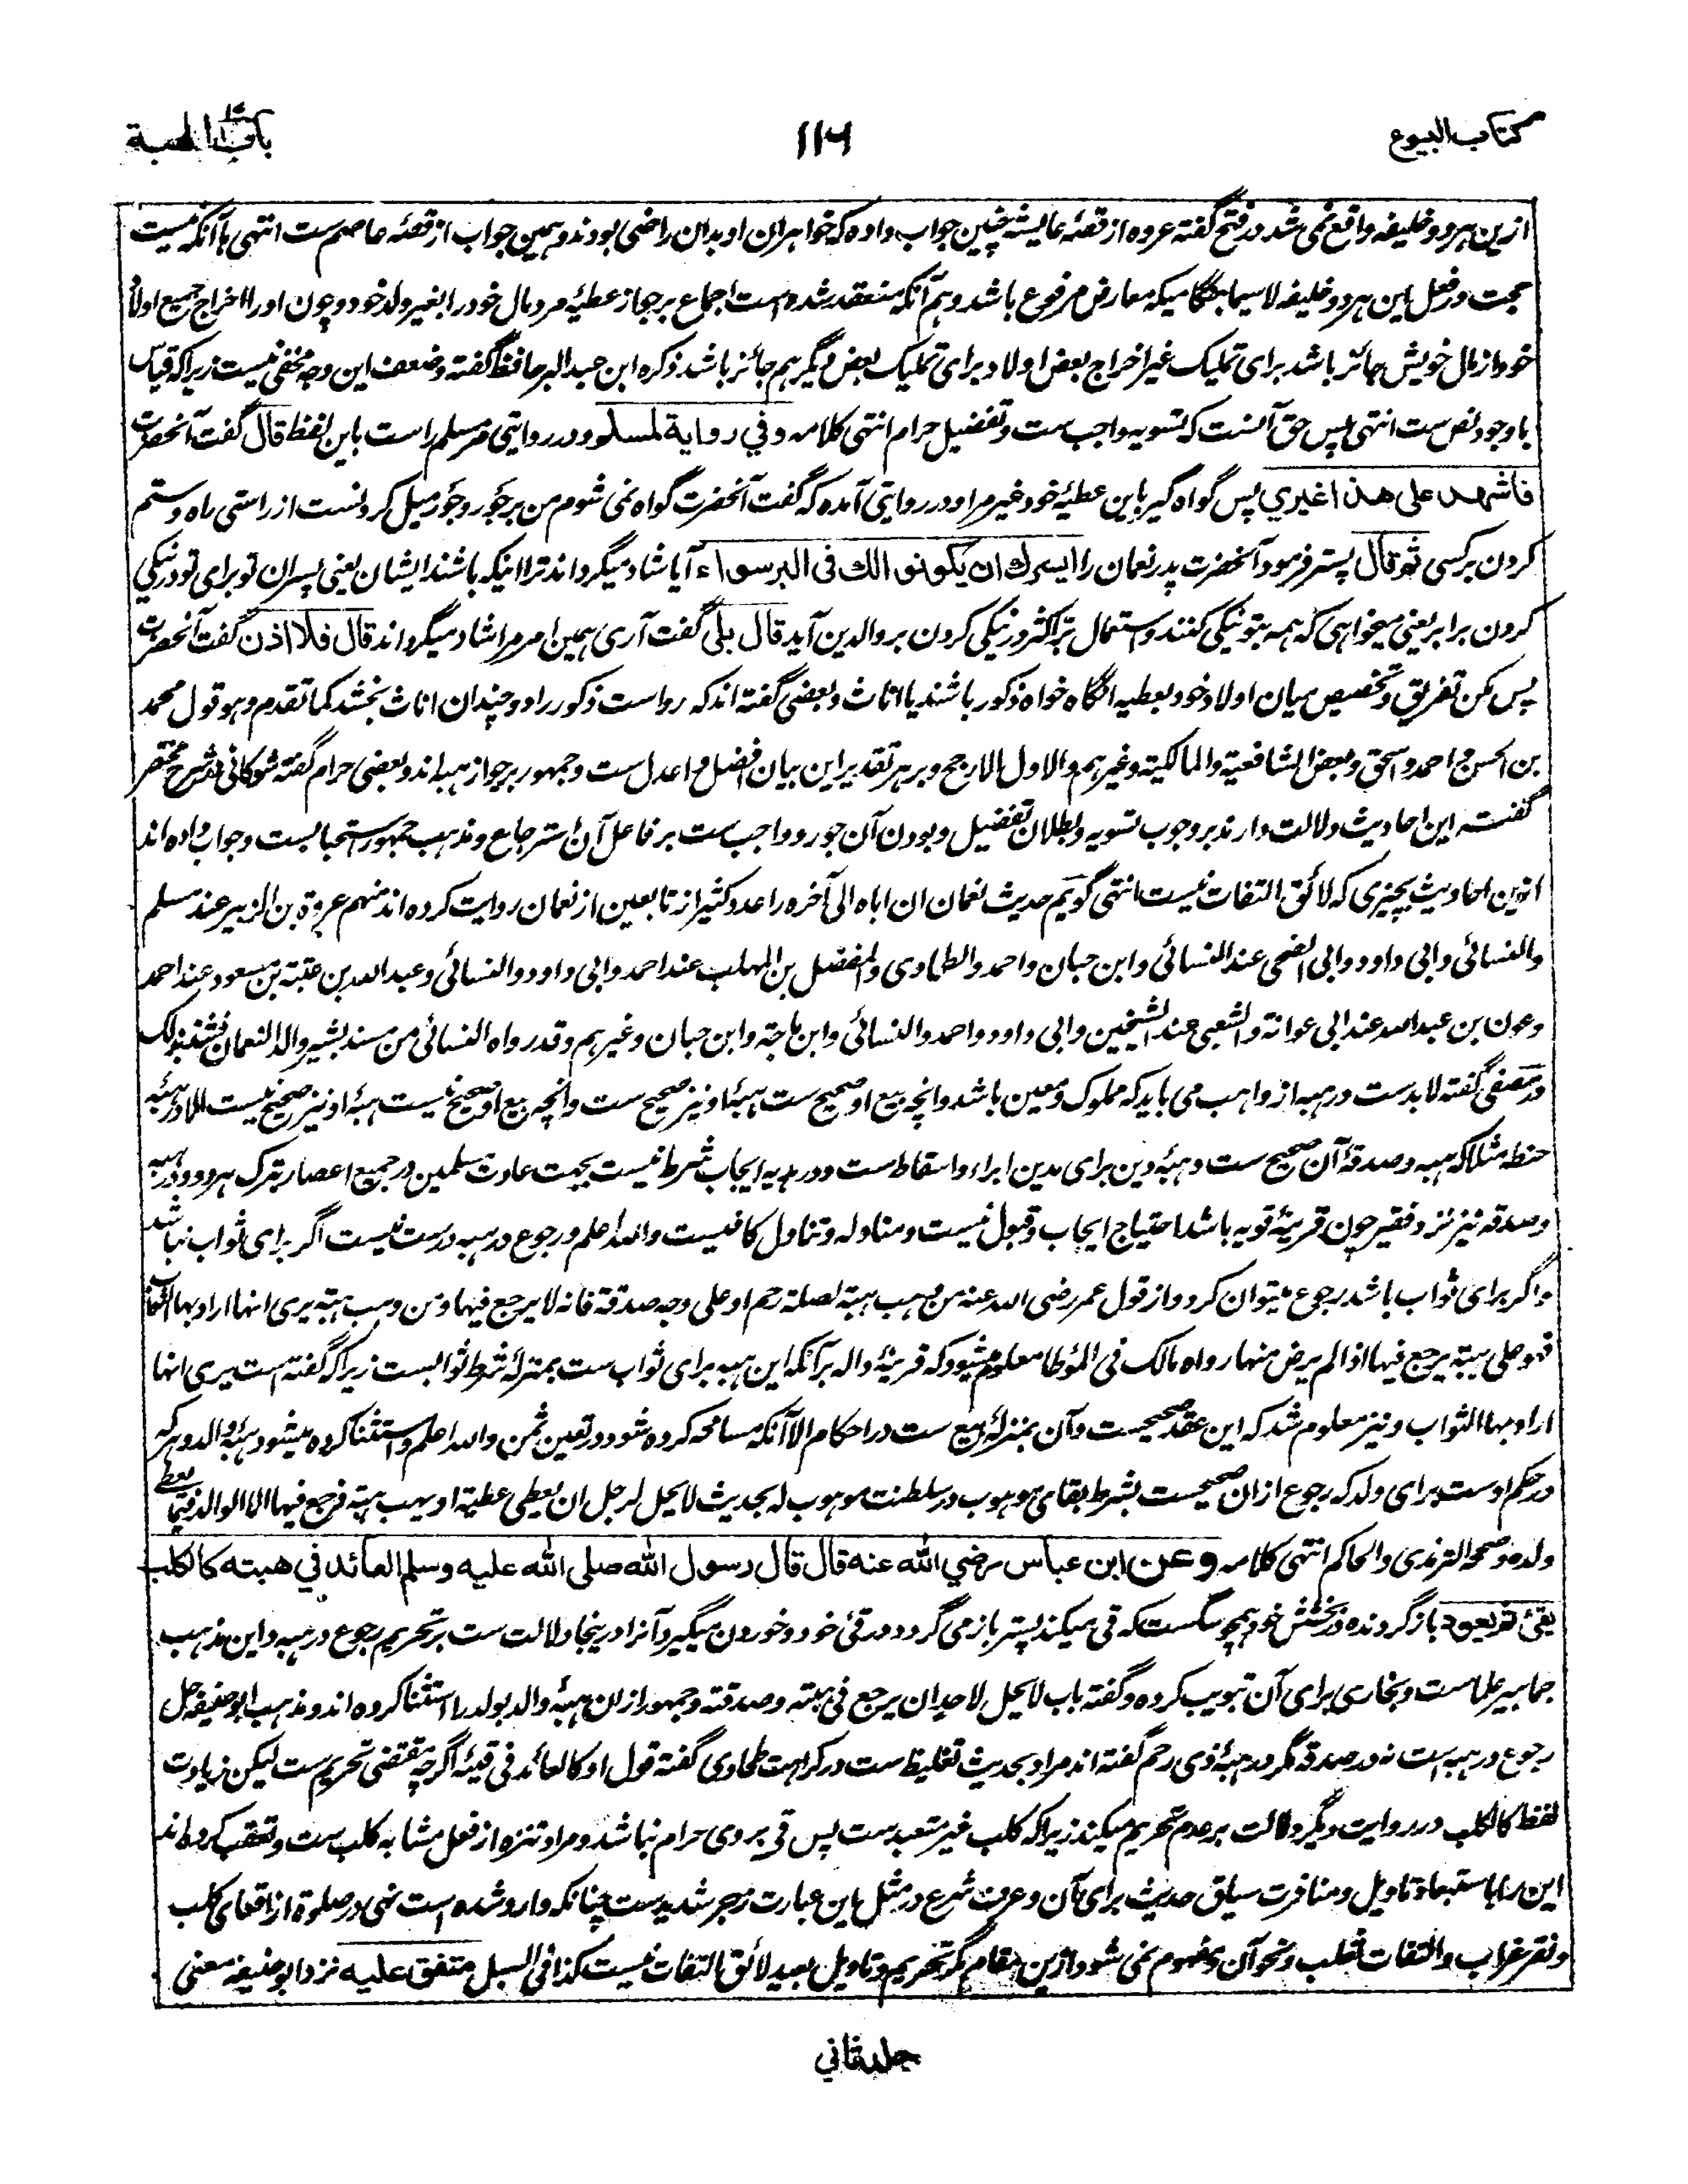 کتاب البیوع
۱۱۶
باب الهبة
ازین هر دو خلیفه واقع نمی شد در فتح گفته عروه از قصهٔ عایشه چنین جواب داده که خواهران او بدان راضی بودند و همین جواب از قصهٔ عاصم ست انتهی با آنکه نیست
حجت در فعل این هر دو خلیفه لاسیما هنگامیکه معارض مرفوع باشد و هم آنکه منعقد شده است اجماع بر جواز عطیهٔ مرد مال خود را بغیر ولد خود و چون او را اخراج جمیع اولاد
خود از مال خویش جائز باشد برای تملیک غیر اخراج بعض اولاد برای تملیک بعض دیگر هم جائز باشد ذکره ابن عبد البر حافظ گفته و ضعف این وجه مخفی نیست زیرا که قیاس
با وجود نص ست انتهی پس حق آنست که تسویه واجب ست و تفضیل حرام انتهی کلامه وفي رواية لمسلم و در روایتی مر مسلم راست باین لفظ قال گفت آنحضرت
فاشهد على هذا غيري پس گواه گیر باین عطیهٔ خود غیر مرا و در روایتی آمده که گفت آنحضرت گواه نمی شوم من بر جور و جور میل کردنست از راستی راه و ستم
کردن بر کسی ثم قال پستر فرمود آنحضرت پدر نعمان را ايسرك ان يكونوا لك فى البر سواء آیا شاد میگرداند ترا اینکه باشند ایشان یعنی پسران تو برای تو در نیکی
کردن برابر یعنی میخواهی که همه بتو نیکی کنند و استعمال بر اکثر در نیکی کردن بر والدین آید قال بلى گفت آری همین امر مرا شاد میگرداند قال فلا اذن گفت آنحضرت
پس مکن تفریق و تخصیص میان اولاد خود بعطیه انگاه خواه ذکور باشند یا اناث و بعضی گفته اند که رواست ذکور را دو چندان اناث بخشد کما تقدم و هو قول محمد
بن الحسن و احمد و اسحق و بعض الشافعیة والمالکیة وغیرهم والاول الارجح و بر هر تقدیر این بیان افضل و اعدل ست و جمهور بر جواز هبه اند و بعضی حرام گفته شوکانی در شرح مختصر
گفته این احادیث دلالت دارند بر وجوب تسویه و بطلان تفضیل و بودن آن جور و واجب ست بر فاعل آن استرجاع و مذهب جمهور استحبابست و جواب داده اند
ازین احادیث بچیزی که لائق التفات نیست انتهی گویم حدیث نعمان ان اباه الی آخره را عدد کثیر از تابعین از نعمان روایت کرده اند منهم عروة بن الزبیر عند مسلم
والنسائی وابی داود وابی الضحی عند النسائی وابن حبان واحمد والطحاوی والمفضل بن المهلب عند احمد وابی داود والنسائی وعبد الله بن عتبة بن مسعود عند احمد
وعون بن عبد الله عند ابی عوانة والشعبی عند الشیخین وابی داود واحمد والنسائی وابن ماجة وابن حبان وغیرهم وقد رواه النسائی من مسند بشیر والد النعمان فشذ بذلک
در مصفی گفته لابدست در هبه از واهب می باید که مملوک و معین باشد وانچه بیع او صحیح ست هبهٔ او نیز صحیح ست وانچه بیع او صحیح نیست هبهٔ او نیز صحیح نیست الا در هبهٔ
حنطه مثلا که هبه و صدقهٔ آن صحیح ست و هبهٔ دین برای مدین ابراء و اسقاط ست و در هدیه ایجاب شرط نیست بجهت عادت مسلمین در جمیع اعصار بترک هر دو و در هبه
و صدقه نیز نزد فقیر چون قرینهٔ قویه باشد احتیاج ایجاب و قبول نیست و مناوله و تناول کافیست والله اعلم و رجوع در هبه درست نیست اگر برای ثواب نباشد
و اگر برای ثواب باشد رجوع میتوان کرد و از قول عمر رضی الله عنه من وهب هبة لصلة رحم او علی وجه صدقة فانه لا یرجع فیها ومن وهب هبة یری انها اراد بها الثواب
فهو علی هبته یرجع فیها اذا لم یرض منها رواه مالک فی المؤطا معلوم میشود که قرینهٔ داله بر آنکه این هبه برای ثواب ست بمنزلهٔ شرط ثوابست زیرا که گفته است یری انها
اراد بها الثواب و نیز معلوم شد که این عقد صحیحست و آن بمنزلهٔ بیع ست در احکام الا آنکه مسامحه کرده شود در تعین ثمن والله اعلم و استثنا کرده میشود هبهٔ والد و هر که
در حکم اوست برای ولد که رجوع ازان صحیحست بشرط بقای موهوب در سلطنت موهوب له بحدیث لا یحل لرجل ان یعطی عطیة او یهب هبة فرجع فیها الا الوالد فیما یعطی
ولده وصححه الترمذی والحاکم انتهی کلامه وعن ابن عباس رضي الله عنه قال قال رسول الله صلى الله عليه وسلم العائد في هبته كالكلب
يقيئ ثم يعود باز گردنده در بخشش خود همچو سگست که قی میکند پستر باز می گردد در قئ خود و خوردن میگیرد آنرا درینجا دلالت ست بر تحریم رجوع در هبه و این مذهب
جماهیر علماست و بخاری برای آن تبویب کرده و گفته باب لا یحل لاحد ان یرجع فی هبته وصدقته و جمهور ازان هبهٔ والد بولد را استثنا کرده اند و مذهب ابو حنیفه حل
رجوع در هبه است نه در صدقه مگر در هبهٔ ذی رحم گفته اند مراد بحدیث تغلیظ ست در کراهت طحاوی گفته قول او کالعائد فی قیئه اگرچه مقتضی تحریم ست لیکن زیادت
لفظ کالکلب در روایت دیگر دلالت بر عدم تحریم میکند زیرا که کلب غیر متعبد ست پس قی بر وی حرام نباشد و مراد تنزه از فعل مشابه کلب ست و تعقب کرده اند
این را باستبعاد تاویل و منافرت سیاق حدیث برای آن و عرف شرع در مثل این عبارت زجر شدید ست چنانکه وارد شده است نهی در صلوة از اقعای کلب
و نقر غراب و التفات ثعلب و نحو آن و مفهوم نمی شود ازین مقام مگر تحریم و تاویل بعید لائق التفات نیست کذا فی السبل متفق عليه نزد ابو حنیفه معنی
جلد ثانی